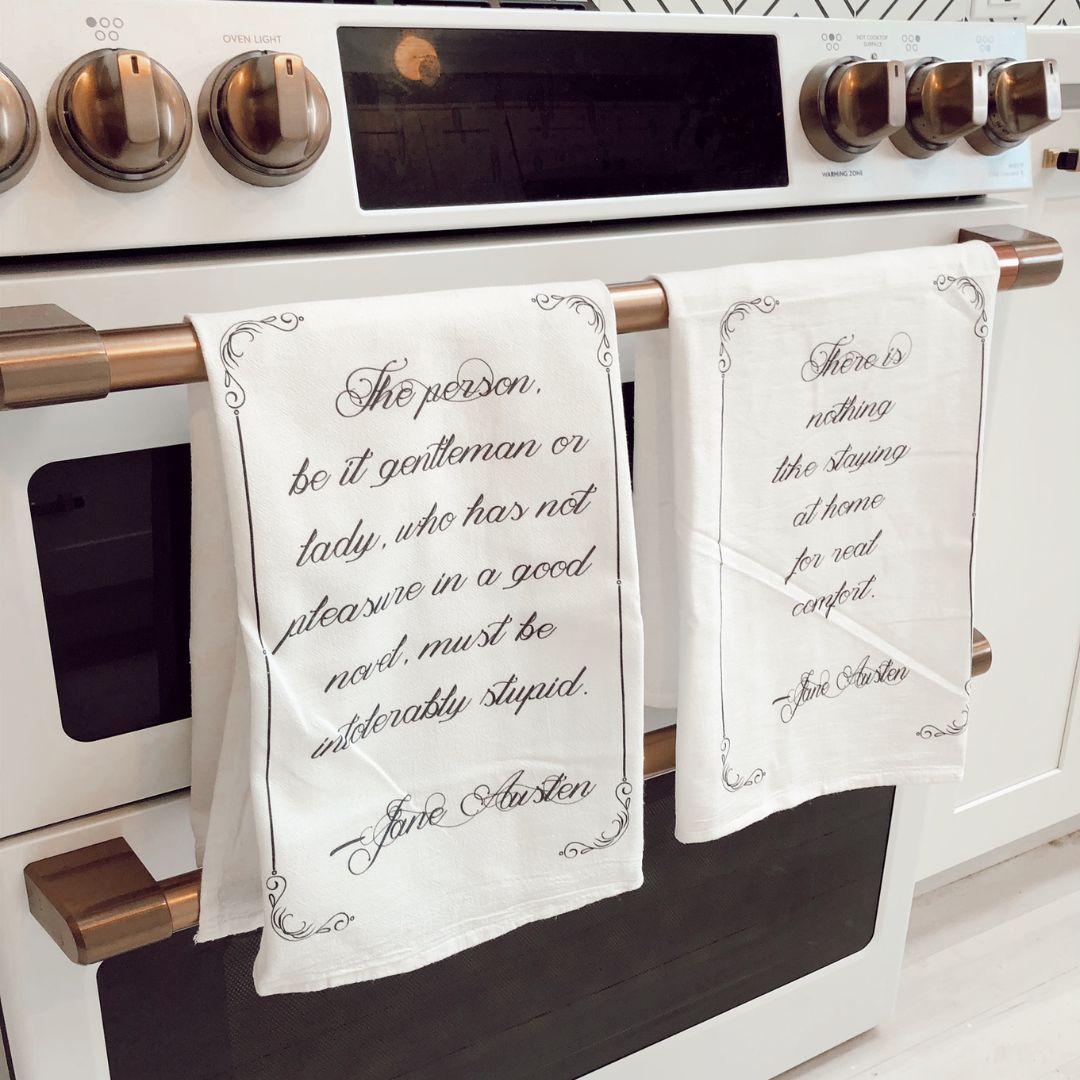 OVEN LIGHT
HOT COOKTOP
SURFACE
WARMING ZONE
The person,
be it gentleman or
lady, who has not
pleasure in a good
novel, must be
intolerably stupid.
—Jane Austen
There is
nothing
like staying
at home
for real
comfort.
—Jane Austen